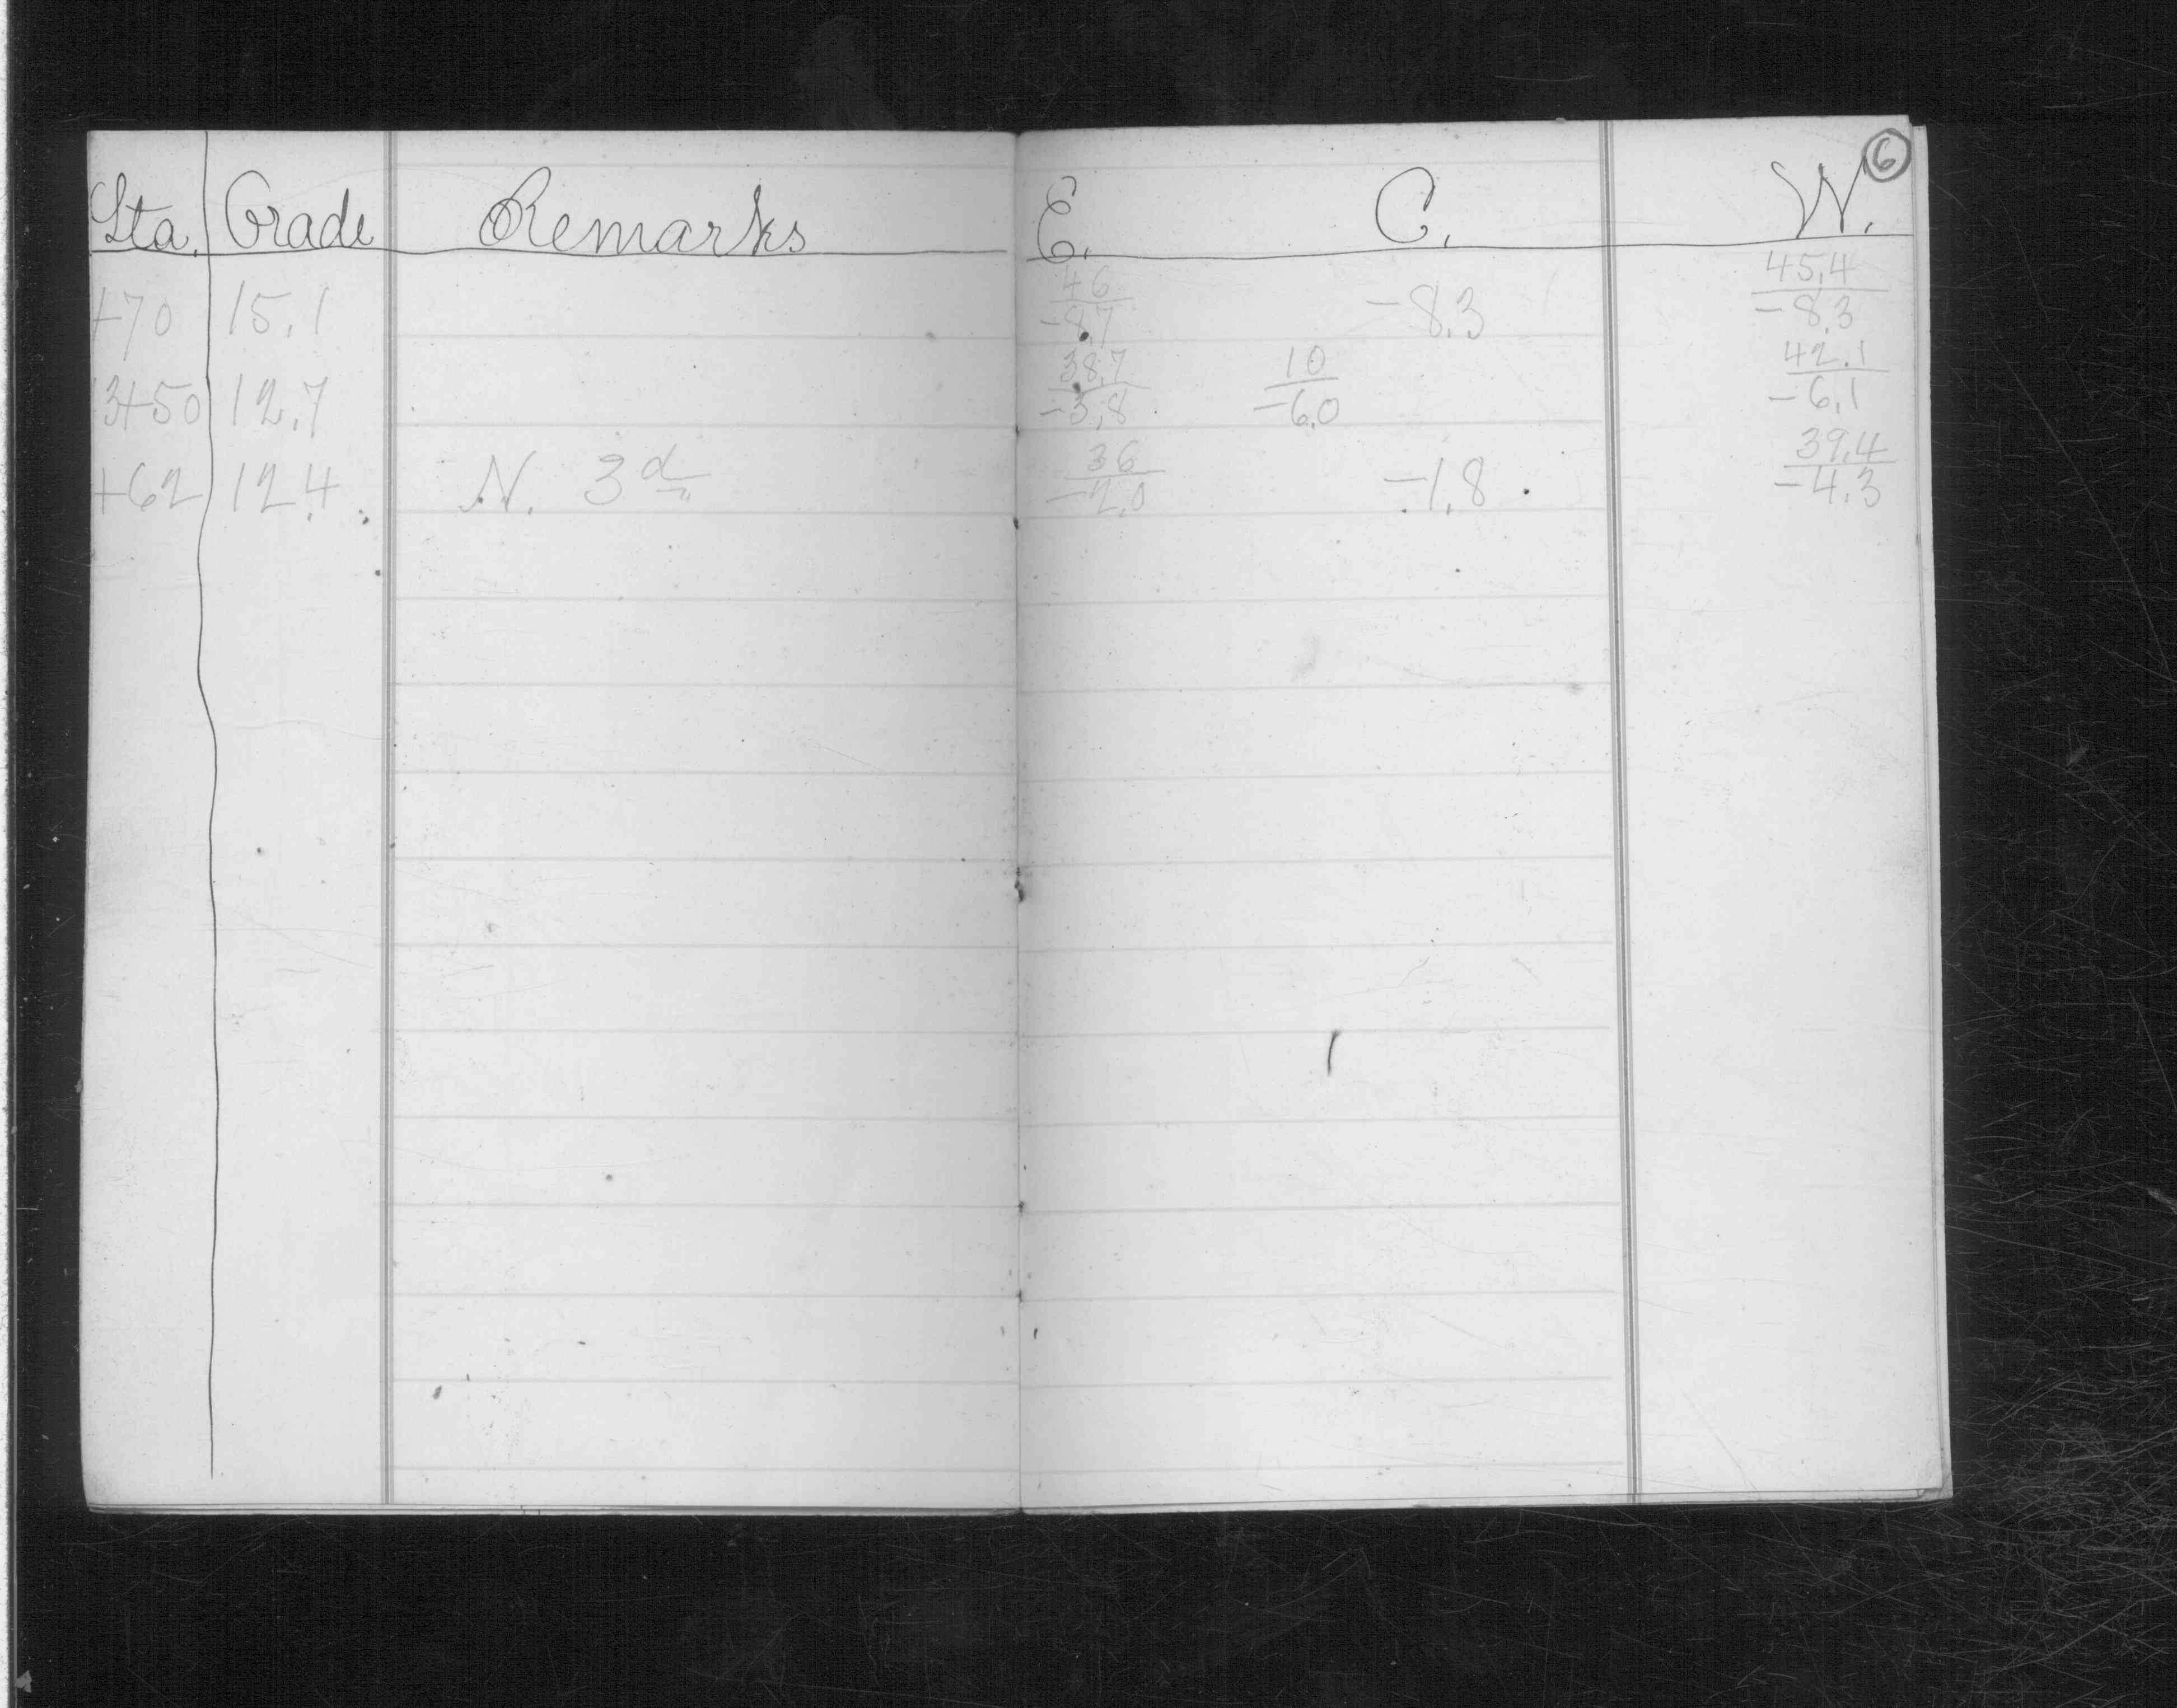 6
Sta. Grade Remarks E. C. W.
46 45.4
+70 15.1 -8.7 -8.3 -8.3
38.7 10 42.1
3+50 12.7 -3.8 -6.0 -6.1
36 39.4
+62 12.4 N. 3d -2.0 -1.8 -4.3